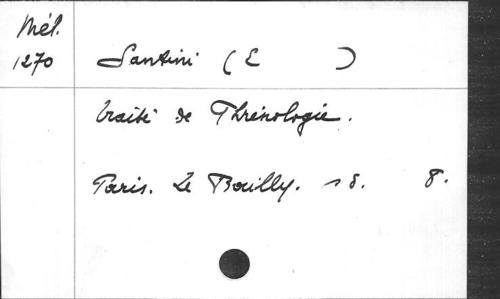 Mél.
1270
Santini (E )
Traité de Phrénologie.
Paris. Le Bailly. s d. 8.